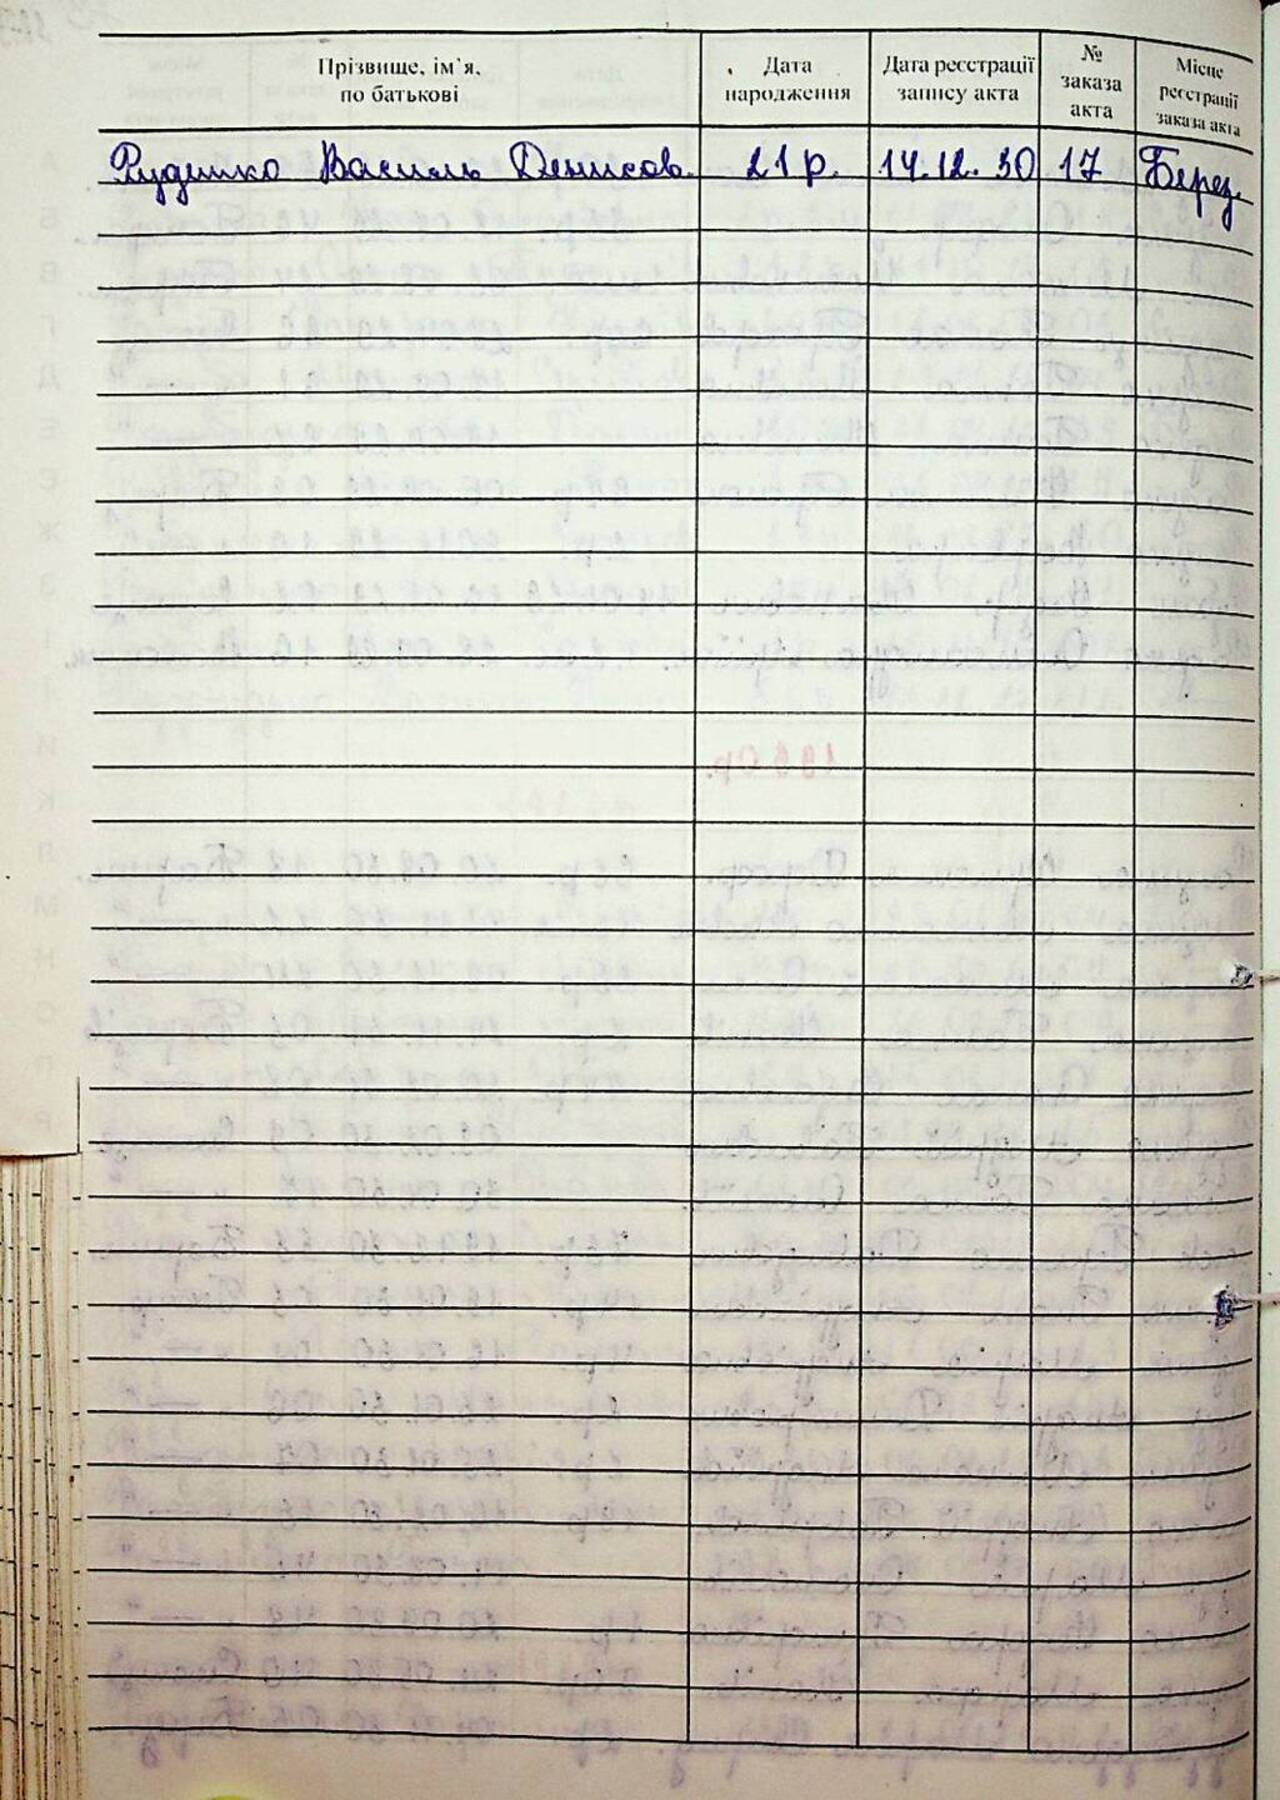 Прізвище, ім'я, по батькові
Дата народження
Дата реєстрації запису акта
№ заказа акта
Місце реєстрації заказа акта
Руденко Василь Денисов. 21 р. 14.12.30 17 Берез.